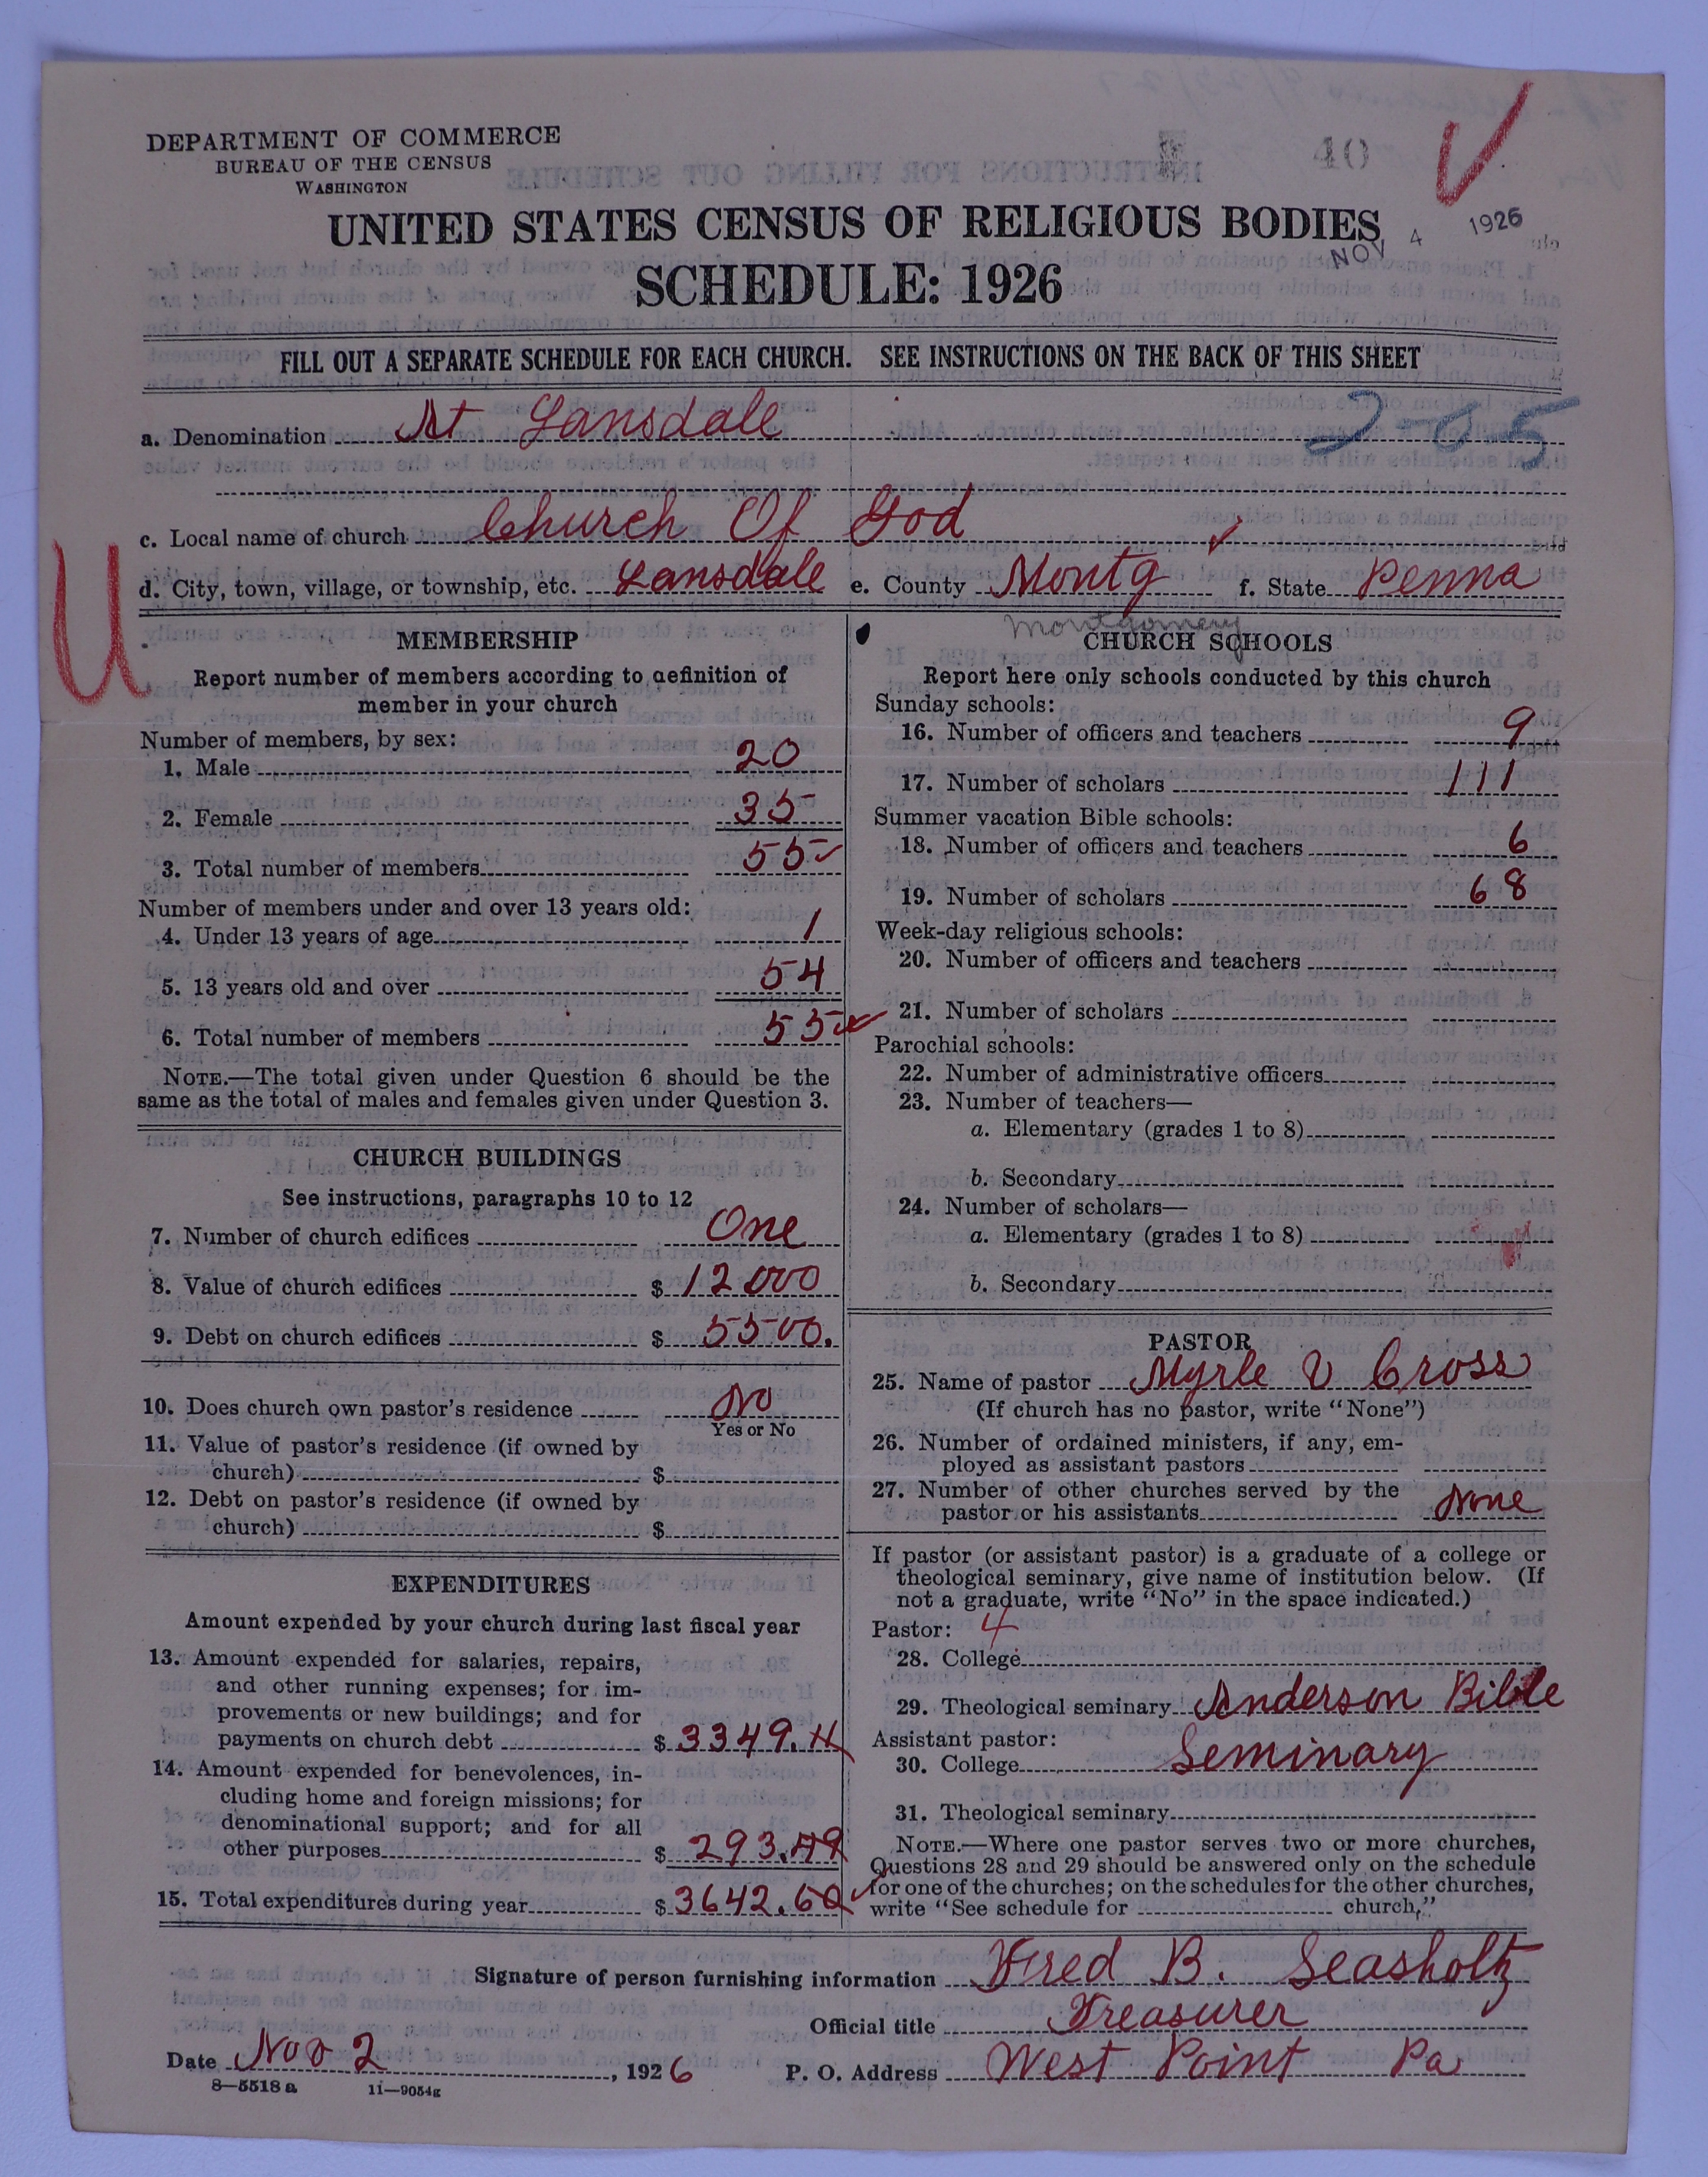 DEPARTMENT OF COMMERCE
BUREAU OF THE CENSUS
WASHINGTON
40
UNITED STATES CENSUS OF RELIGIOUS BODIES
NOV 4 1926
SCHEDULE: 1926
FILL OUT A SEPARATE SCHEDULE FOR EACH CHURCH. SEE INSTRUCTIONS ON THE BACK OF THIS SHEET
a. Denomination At Lansdale 2-0-5
c. Local name of church Church Of God
d. City, town, village, or township, etc. Lansdale e. County Montg f. State Penna
Montgomery
U
MEMBERSHIP
Report number of members according to definition of
member in your church
Number of members, by sex:
1. Male 20
2. Female 35
3. Total number of members 55
Number of members under and over 13 years old:
4. Under 13 years of age 1
5. 13 years old and over 54
6. Total number of members 55
NOTE.—The total given under Question 6 should be the
same as the total of males and females given under Question 3.
CHURCH BUILDINGS
See instructions, paragraphs 10 to 12
7. Number of church edifices One
8. Value of church edifices $ 12000
9. Debt on church edifices $ 5500.
10. Does church own pastor's residence No
Yes or No
11. Value of pastor's residence (if owned by
church) $
12. Debt on pastor's residence (if owned by
church) $
EXPENDITURES
Amount expended by your church during last fiscal year
13. Amount expended for salaries, repairs,
and other running expenses; for im-
provements or new buildings; and for
payments on church debt $ 3349.11
14. Amount expended for benevolences, in-
cluding home and foreign missions; for
denominational support; and for all
other purposes $ 293.49
15. Total expenditures during year $ 3642.60
CHURCH SCHOOLS
Report here only schools conducted by this church
Sunday schools:
16. Number of officers and teachers 9
17. Number of scholars 111
Summer vacation Bible schools:
18. Number of officers and teachers 6
19. Number of scholars 68
Week-day religious schools:
20. Number of officers and teachers
21. Number of scholars
Parochial schools:
22. Number of administrative officers
23. Number of teachers—
a. Elementary (grades 1 to 8)
b. Secondary
24. Number of scholars—
a. Elementary (grades 1 to 8)
b. Secondary
PASTOR
25. Name of pastor Myrle V Cross
(If church has no pastor, write "None")
26. Number of ordained ministers, if any, em-
ployed as assistant pastors
27. Number of other churches served by the
pastor or his assistants None
If pastor (or assistant pastor) is a graduate of a college or
theological seminary, give name of institution below. (If
not a graduate, write "No" in the space indicated.)
Pastor: 4
28. College
29. Theological seminary Anderson Bible
Assistant pastor:
30. College Seminary
31. Theological seminary
NOTE.—Where one pastor serves two or more churches,
Questions 28 and 29 should be answered only on the schedule
for one of the churches; on the schedules for the other churches,
write "See schedule for church."
Signature of person furnishing information Fred B. Seasholtz
Official title Treasurer
Date Nov 2, 1926 P. O. Address West Point Pa
8—5518 a 11—9054g